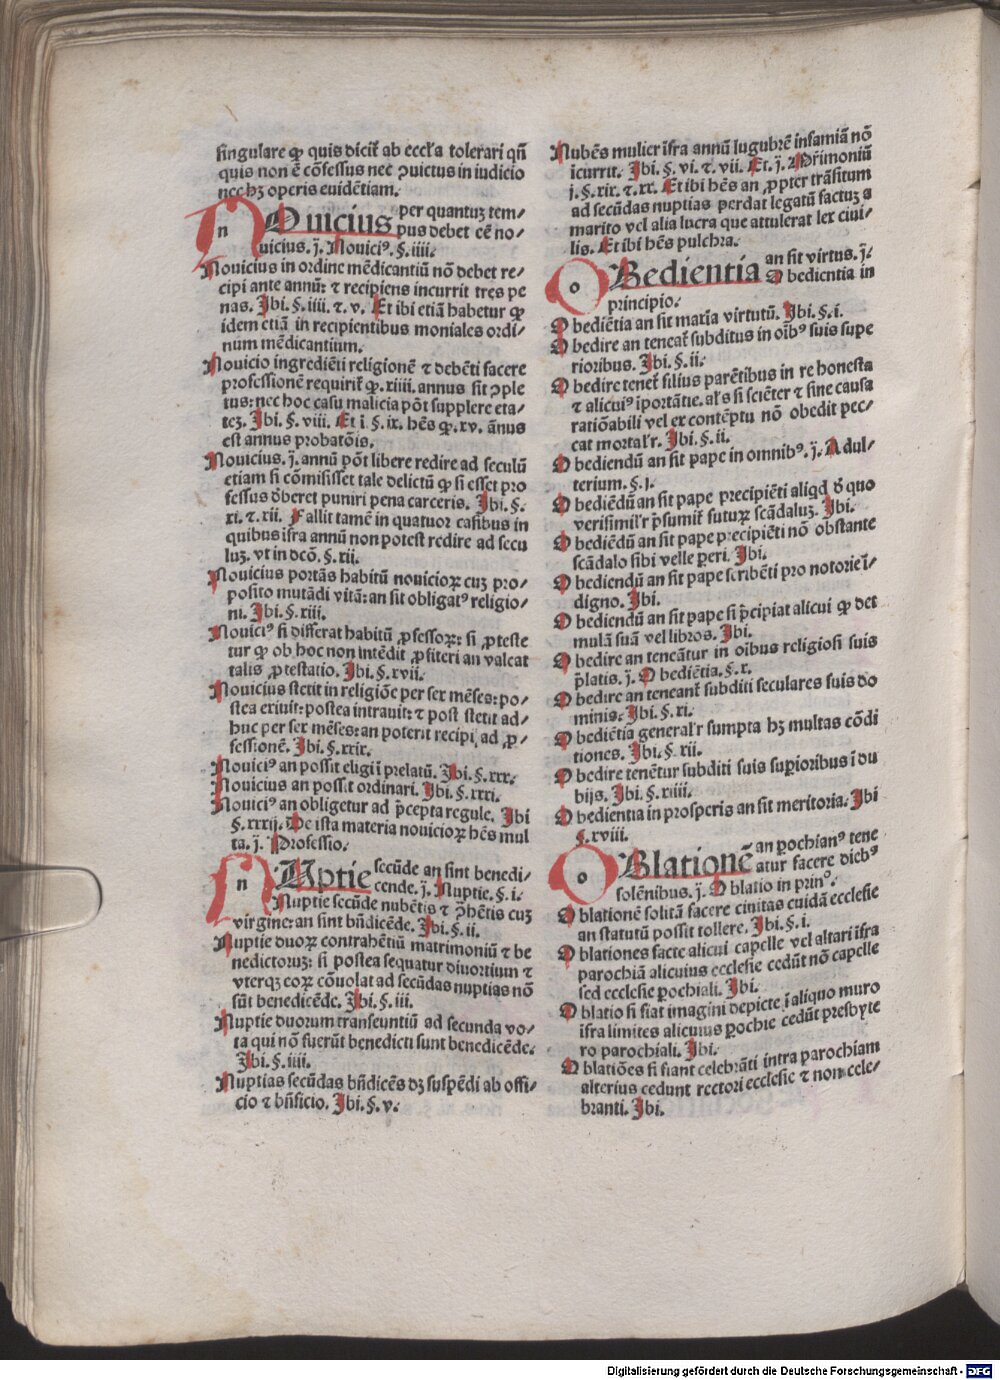 singulare ꝙ quis dicit᷑ ab eccľa tolerari qñ
quis non ē cōfessus nec ꝯuictus in iudicio
nec hꝫ operis euidētiam.
n Ouicius per quantuꝫ tem/
pus debet eē no/
uicius. j̄. Nouiciꝰ. §. iiii.
Nouicius in ordine mēdicantiū nō debet re/
cipi ante annū: ⁊ recipiens incurrit tres pe
nas. Ibi. §. iiii. ⁊. v. Et ibi etiā habetur ꝙ
idem etiā in recipientibus moniales ordi/
num mēdicantium.
Nouicio ingrediēti religionē ⁊ debēti facere
professionē requirit᷑ ꝙ. xiiii. annus sit ꝯple
tus: nec hoc casu malicia pōt supplere eta/
teꝫ. Ibi. §. viii. Et ī §. ix. hēs ꝙ. xv. ānus
est annus probatōis.
Nouicius. j̄. annū pōt libere redire ad seculū
etiam si cōmisisset tale delictū ꝙ si esset pro
fessus dēberet puniri pena carceris. Ibi. §.
xi. ⁊. xii. Fallit tamē in quatuor casibus in
quibus ifra annū non potest redire ad secu
luꝫ. vt in dcō. §. xii.
Nouicius portās habitū nouicioꝝ cuꝫ pro/
posito mutādi vitā: an sit obligatꝰ religio/
ni. Ibi. §. xiii.
Nouiciꝰ si differat habitū ꝓfessoꝝ: si ꝓteste
tur ꝙ ob hoc non intēdit ꝓfiteri an valeat
talis ꝓtestatio. Ibi. §. xvii.
Nouicius stetit in religiōe per sex mēses: po/
stea exiuit: postea intrauit: ⁊ post stetit ad/
huc per sex mēses: an poterit recipi ad ꝓ/
fessionē. Ibi. §. xxix.
Nouiciꝰ an possit eligi ī prelatū. Ibi. §. xxx.
Nouicius an possit ordinari. Ibi. §. xxxi.
Nouiciꝰ an obligetur ad p̄cepta regule. Ibi
§. xxxij. De ista materia nouicioꝝ hēs mul
ta. j̄. Professio.
n Uptie secūde an sint benedi/
cende. j̄. Nuptie. §. i.
Nuptie secūde nubētis ⁊ ꝯ̄hētis cuꝫ
virgine: an sint bn̄dicēde. Ibi. §. ii.
Nuptie duoꝝ contrahētiū matrimoniū ⁊ be
nedictoruꝫ: si postea sequatur diuortium ⁊
vterqꝫ eoꝝ cōuolat ad secūdas nuptias nō
sūt benedicēde. Ibi. §. iii.
Nuptie duorum transeuntiū ad secunda vo/
ta qui nō fuerūt benedicti sunt benedicēde.
Ibi. §. iiii.
Nuptias secūdas bn̄dicēs dꝫ suspēdi ab offi/
cio ⁊ bn̄ficio. Ibi. §. v.
Nubēs mulier ifra annū lugubrē infamiā nō
icurrit. Ibi. §. vi. ⁊. vii. Et. j̄. Mr̄imoniū
j. §. xix. ⁊. xx. Et ibi hēs an ꝓpter trāsitum
ad secūdas nuptias perdat legatū factuꝫ a
marito vel alia lucra que attulerat lex ciui/
lis. Et ibi hēs pulchra.
o Bedientia an sit virtus. j̄.
Obedientia in
principio.
Obediētia an sit maxīa virtutū. Ibi. §. i.
Obedire an teneat᷑ subditus in oībꝰ suis supe
rioribus. Ibi. §. ii.
Obedire tenet᷑ filius parētibus in re honesta
⁊ alicuiꝰ iportātie. aľs si sciēter ⁊ sine causa
ratiōabili vel ex contēptu nō obedit pec/
cat mortaľr. Ibi. §. ii.
Obediendū an sit pape in omnibꝰ. j̄. Adul/
terium. §. j.
Obediēdū an sit pape precipiēti aliqd d̄ quo
verisimiľr p̄sumit᷑ futuꝝ scādaluꝫ. Ibi.
Obediēdū an sit pape precipiēti nō obstante
scādalo sibi velle ꝑeri. Ibi.
Obediendū an sit pape scribēti pro notorie ī/
digno. Ibi.
Obediendū an sit pape si p̄cipiat alicui ꝙ det
mulā suā vel libros. Ibi.
Obedire an teneātur in oībus religiosi suis
p̄latis. j̄. Obediētia. §. x.
Obedire an teneant᷑ subditi seculares suis do
minis. Ibi. §. xi.
Obediētia generaľr sumpta hꝫ multas cōdi
tiones. Ibi. §. xii.
Obedire tenētur subditi suis suꝑioribus ī du
bijs. Ibi. §. xiiii.
Obedientia in prosperis an sit meritoria. Ibi
§. xviii.
o Blationē an ꝑochianꝰ tene
atur facere diebꝰ
solēnibus. j̄. Oblatio in prinᵒ.
Oblationē solitā facere ciuitas cuidā ecclesie
an statutū possit tollere. Ibi. §. i.
Oblationes facte alicui capelle vel altari ifra
parochiā alicuius ecclesie cedūt nō capelle
sed ecclesie ꝑochiali. Ibi.
Oblatio si fiat imagini depicte ī aliquo muro
ifra limites alicuius ꝑochie cedūt presbyte
ro parochiali. Ibi.
Oblatiōes si fiant celebrāti intra parochiam
alterius cedunt rectori ecclesie ⁊ non cele/
branti. Ibi.
Digitalisierung gefördert durch die Deutsche Forschungsgemeinschaft - DFG